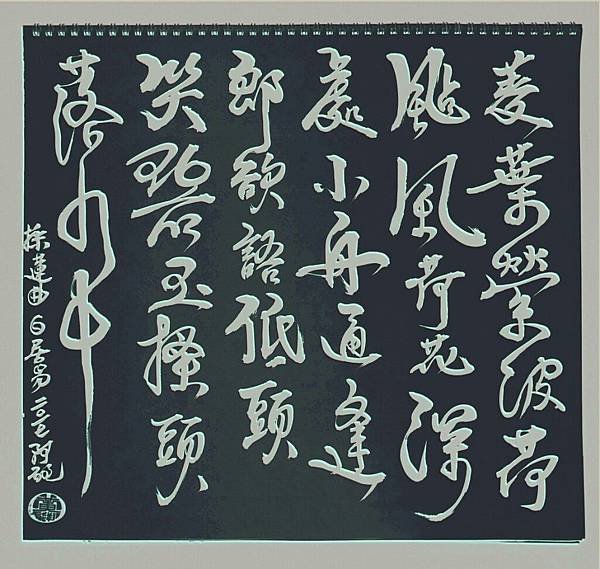 菱葉縈波荷
颭風荷花深
處小舟通逢
郎欲語低頭
笑碧玉搔頭
落水中
採蓮曲 白居易